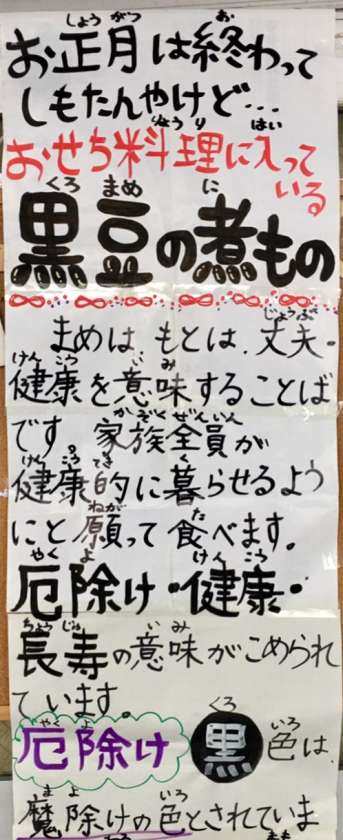 お正月は終わって
しもたんやけど…
おせち料理に入って
いる
黒豆の煮もの
まめは もとは、丈夫・
健康を意味することば
です。家族全員が
健康的に暮らせるよう
にと願って食べます。
厄除け・健康・
長寿の意味がこめられ
ています。
厄除け 黒色は、
魔除けの色とされていま